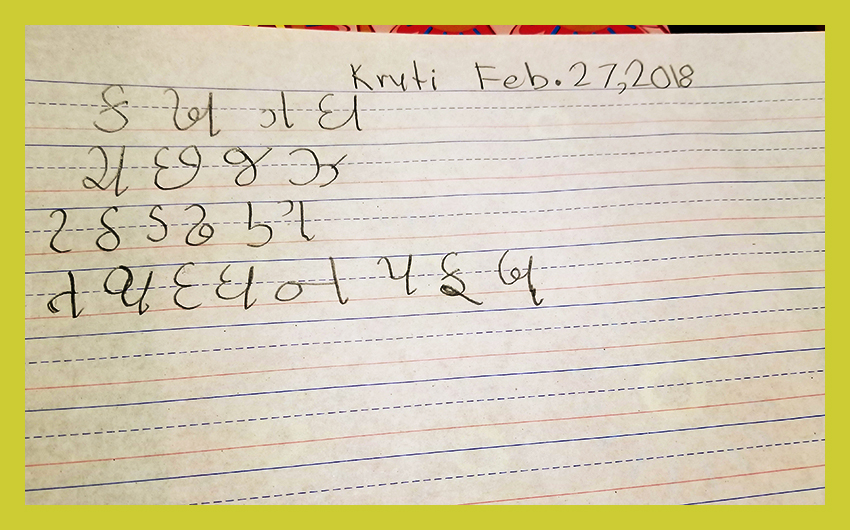 Kruti Feb. 27, 2018
ક ખ ગ ઘ
ચ છ જ ઝ
ટ ઠ ડ ઢ ણ
ત થ દ ધ ન પ ફ બ